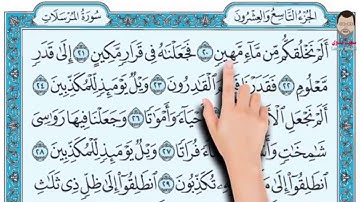 الجُزْءُ التَّاسِعُ وَالعِشْرُونَ
سُورَةُ المُرْسَلَات
أَلَمْ نَخْلُقكُّم مِّن مَّآءٍ مَّهِينٍ ٢٠ فَجَعَلْنَٰهُ فِى قَرَارٍ مَّكِينٍ ٢١ إِلَىٰ قَدَرٍ
مَّعْلُومٍ ٢٢ فَقَدَرْنَا الْقَٰدِرُونَ ٢٣ وَيْلٌ يَوْمَئِذٍ لِّلْمُكَذِّبِينَ ٢٤
أَلَمْ نَجْعَلِ أَحْيَآءً وَأَمْوَٰتًا ٢٦ وَجَعَلْنَا فِيهَا رَوَٰسِىَ
شَٰمِخَٰتٍ فُرَاتًا ٢٧ وَيْلٌ يَوْمَئِذٍ لِّلْمُكَذِّبِينَ ٢٨
ٱنطَلِقُوٓا۟ إِلَىٰ تُكَذِّبُونَ ٢٩ ٱنطَلِقُوٓا۟ إِلَىٰ ظِلٍّ ذِى ثَلَٰثِ